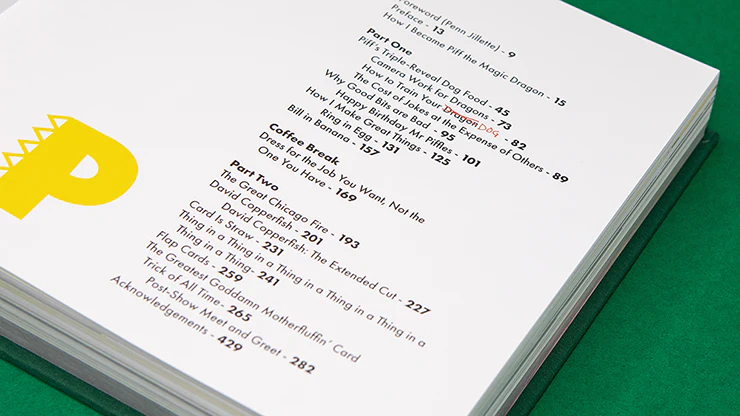 Foreword (Penn Jillette) - 9
Preface - 13
How I Became Piff the Magic Dragon - 15
Part One
Piff's Triple-Reveal Dog Food - 45
Camera Work for Dragons - 73
How to Train Your Dragon DOG - 82
The Cost of Jokes at the Expense of Others - 89
Why Good Bits are Bad - 95
Happy Birthday Mr Piffles - 101
How I Make Great Things - 125
Ring in Egg 131
Bill in Banana - 157
Coffee Break
Dress for the Job You Want, Not the
One You Have - 169
Part Two
The Great Chicago Fire - 193
David Copperfish - 201
David Copperfish: The Extended Cut - 227
Card Is Straw - 231
Thing in a Thing in a Thing in a Thing in a Thing in a
Thing in a Thing- 241
Flap Cards - 259
The Greatest Goddamn Motherfluffin' Card
Trick of All Time- 265
Post-Show Meet and Greet - 282
Acknowledgements - 429
P